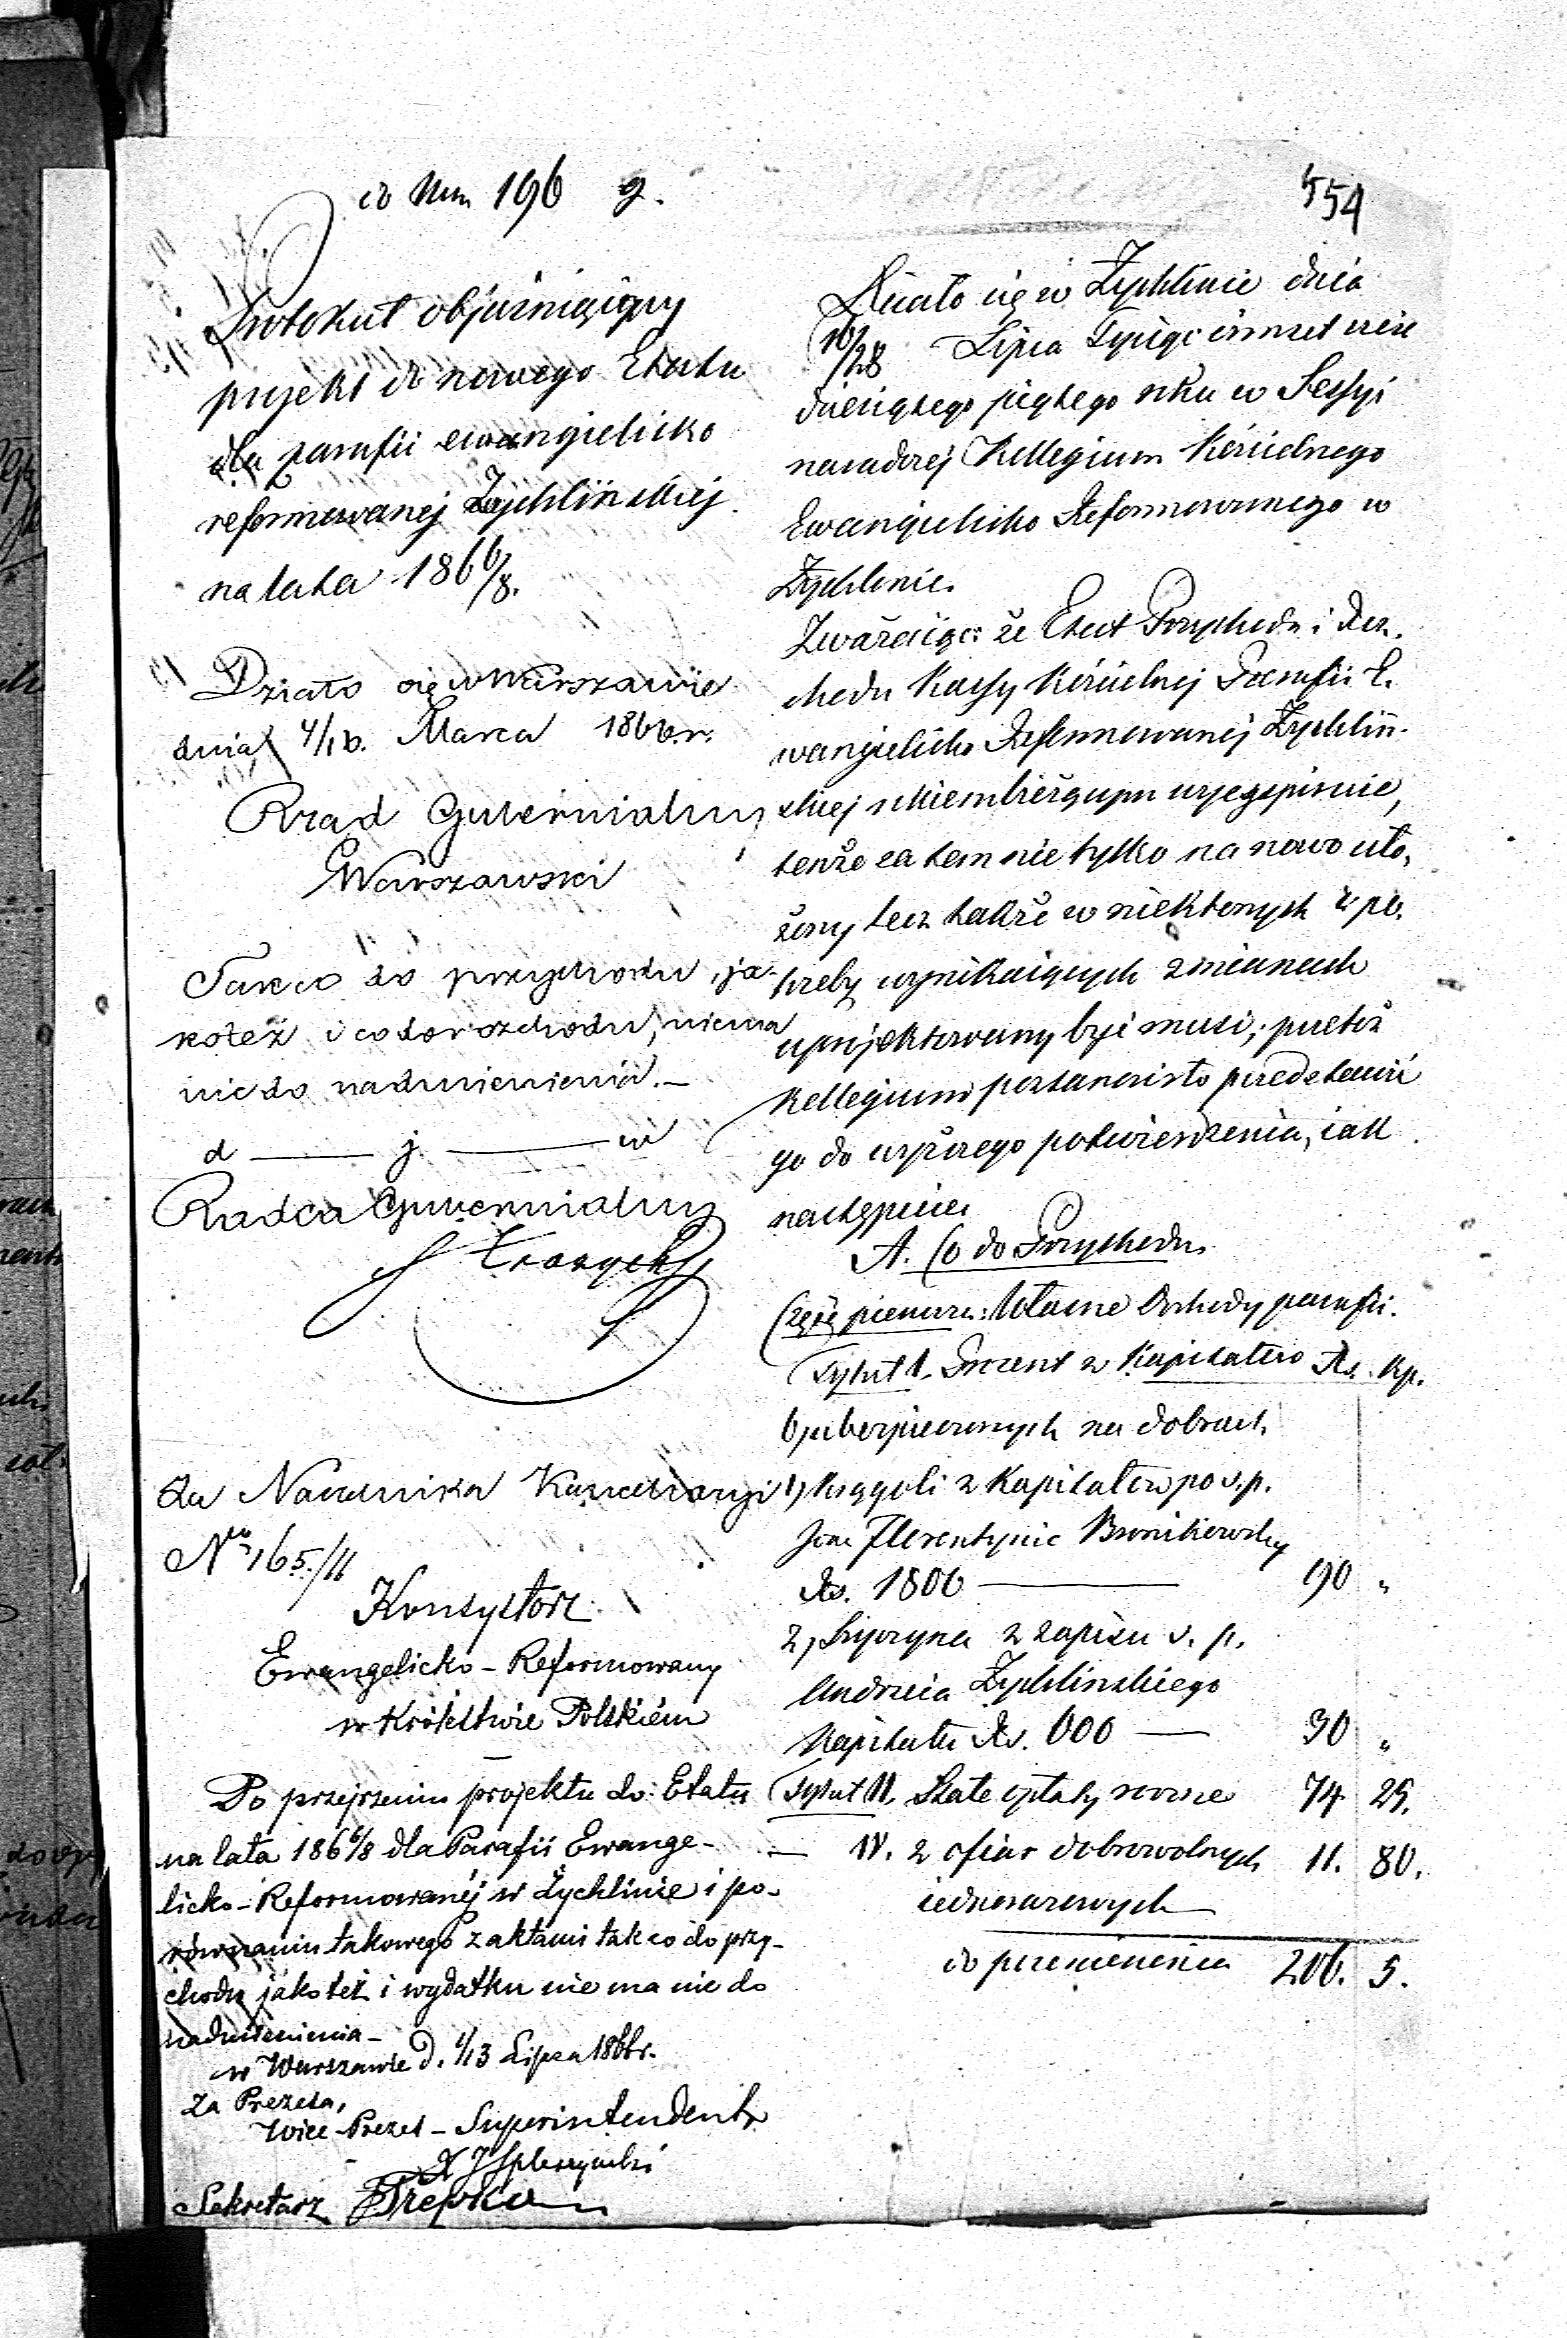 do Num 196 g.
554
Protokuł objaśniaiący
projekt do nowego Etatu
dla parafii ewangielicko
reformowanej Żychlińskiej
na lata 1866/8.
Działo się w Warszawie
dnia 4/16. Marca 1866.r.
Rząd Gubernialny
Warszawski
Tak co do przychodu, ja-
koteż i co do rozchodu, niema
nic do nadmienienia.—
d — j — w
Radca Gubernialny
Za Naczelnika Kancellaryi
No 165/11
Konsystorz
Ewangelicko-Reformowany
w Królestwie Polskiém
Po przejrzeniu projektu do Etatu
na lata 1866/8 dla Parafii Ewange-
licko-Reformowanéj w Żychlinie i po-
równaniu takowego z aktami tak co do przy-
chodu jako też i wydatku nie ma nic do
nadmienienia—
w Warszawie d. 1/13 Lipca 1866 r.
Za Prezesa,
Wice-Prezes-Superintendent
Sekretarz
Działo się w Żychlinie dnia
16/28 Lipca Tysiąc ośmset sześć
dziesiątego piątego roku w Sessyi
naradczej Kollegium Kościelnego
Ewangielicko Reformowanego w
Żychlinie.
Zważaiąc: że Etat Przychodu i Roz-
chodu Kassy Kościelnej Parafii E-
wangielicko Reformowanej Żychliń-
skiej z Kiem bieżącym exspiruie,
tenże zatem nie tylko na nowo uło-
żony lecz także w niektórych z po-
trzeby wynikaiących zmianach
uprojektowany być musi; przetoż
Kollegium postanowiło przedstawić
go do wyższego potwierdzenia, iak
następuie:
A. Co do Przychodu.
Część pierwsza: Własne Dochody parafii.
Tytuł I. Procent z Kapitałów Rs. Kp.
Ubezpieczonych na dobrach
1, Krągoli z Kapitałów po ś.p.
Florentynie Bronikowsky
Rs. 1800 — 90 "
2, Szyszyna z zapisu ś. p.
Andrzeia Żychlinskiego
Kapitału Rs. 600 — 30 "
Tytuł II. Stałe opłaty roczne 74 25.
— IV. z ofiar dobrowolnych 11. 80.
iednorazowych
do przeniesienia 206. 5.